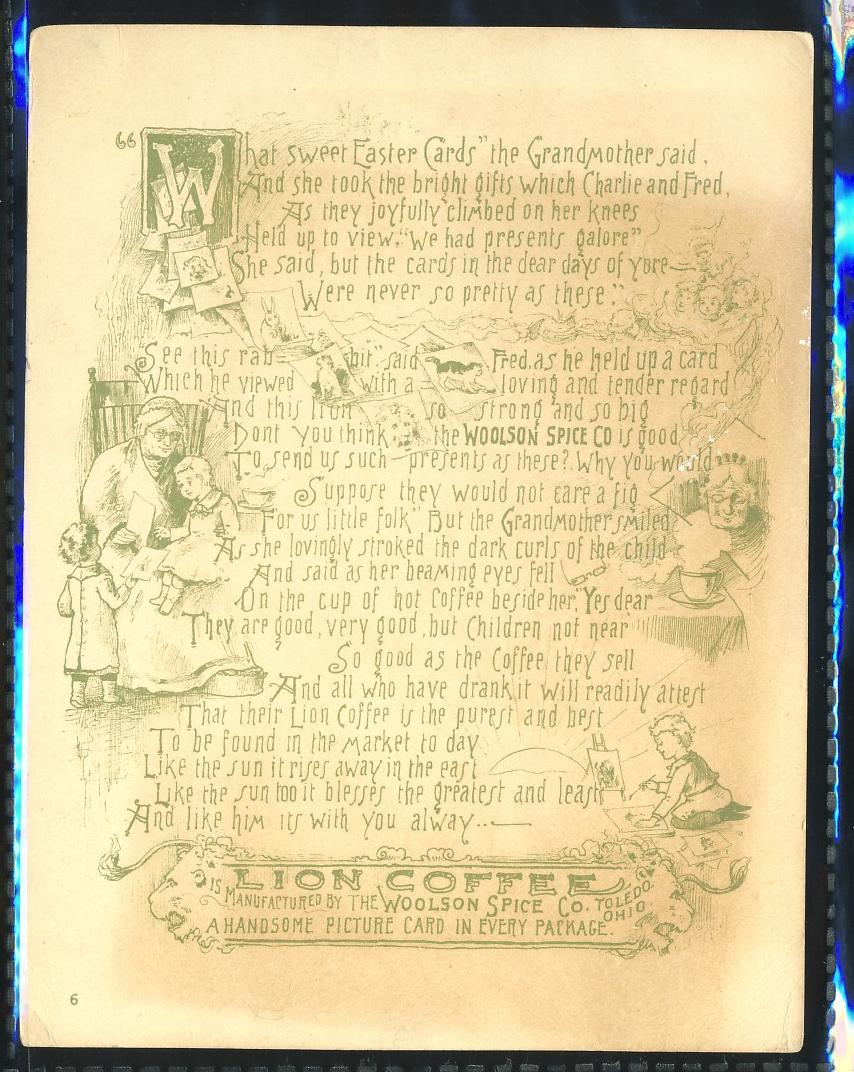 “What sweet Easter Cards” the Grandmother said,
And she took the bright gifts which Charlie and Fred,
As they joyfully climbed on her knees
Held up to view, “We had presents galore”
She said, but the cards in the dear days of yore—
Were never so pretty as these.”
See this rab- bit.” said Fred, as he held up a card
Which he viewed with a loving and tender regard
And this lion so strong and so big
Dont you think the WOOLSON SPICE CO is good
To send us such presents as these?, Why you would
Suppose they would not care a fig
For us little folk” But the Grandmother smiled
As she lovingly stroked the dark curls of the child
And said as her beaming eyes fell
On the cup of hot Coffee beside her, “Yes dear
They are good, very good, but Children not near
So good as the Coffee they sell
And all who have drank it will readily attest
That their Lion Coffee is the purest and best
To be found in the market to day
Like the sun it rises away in the east
Like the sun too it blesses the greatest and least
And like him its with you alway...—
LION COFFEE
IS MANUFACTURED BY THE WOOLSON SPICE CO. TOLEDO, OHIO.
A HANDSOME PICTURE CARD IN EVERY PACKAGE.
6